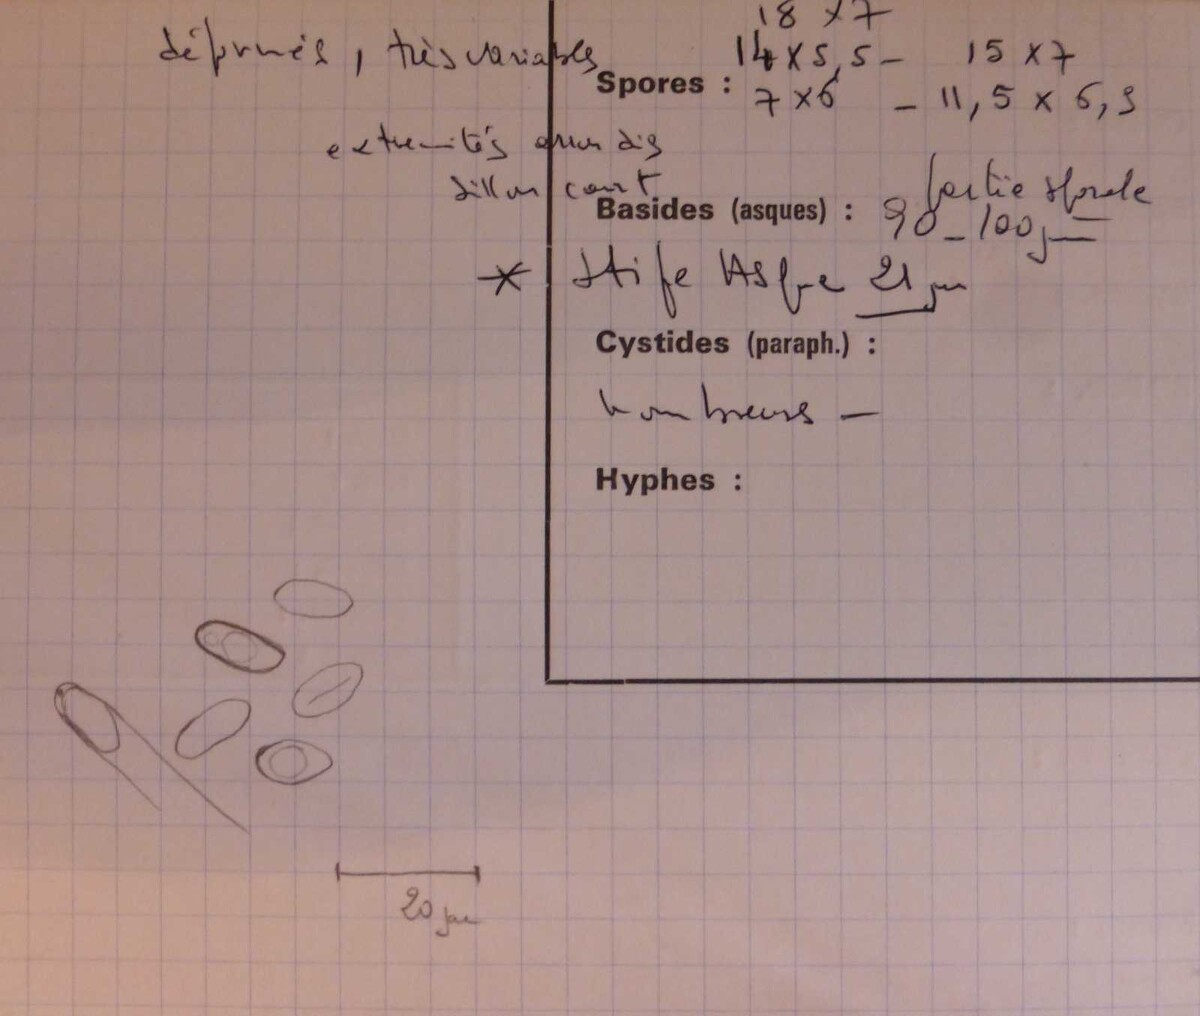 18 x 7
déformés, très variables 14 x 5,5 – 15 x 7
Spores : 7 x 6 – 11,5 x 6,9
extremités arrondis
sillon court partie sporale
Basides (asques) : 90 – 100 µm
* Stipe Asque 21 µm
Cystides (paraph.) :
nombreuses –
Hyphes :
20 µm